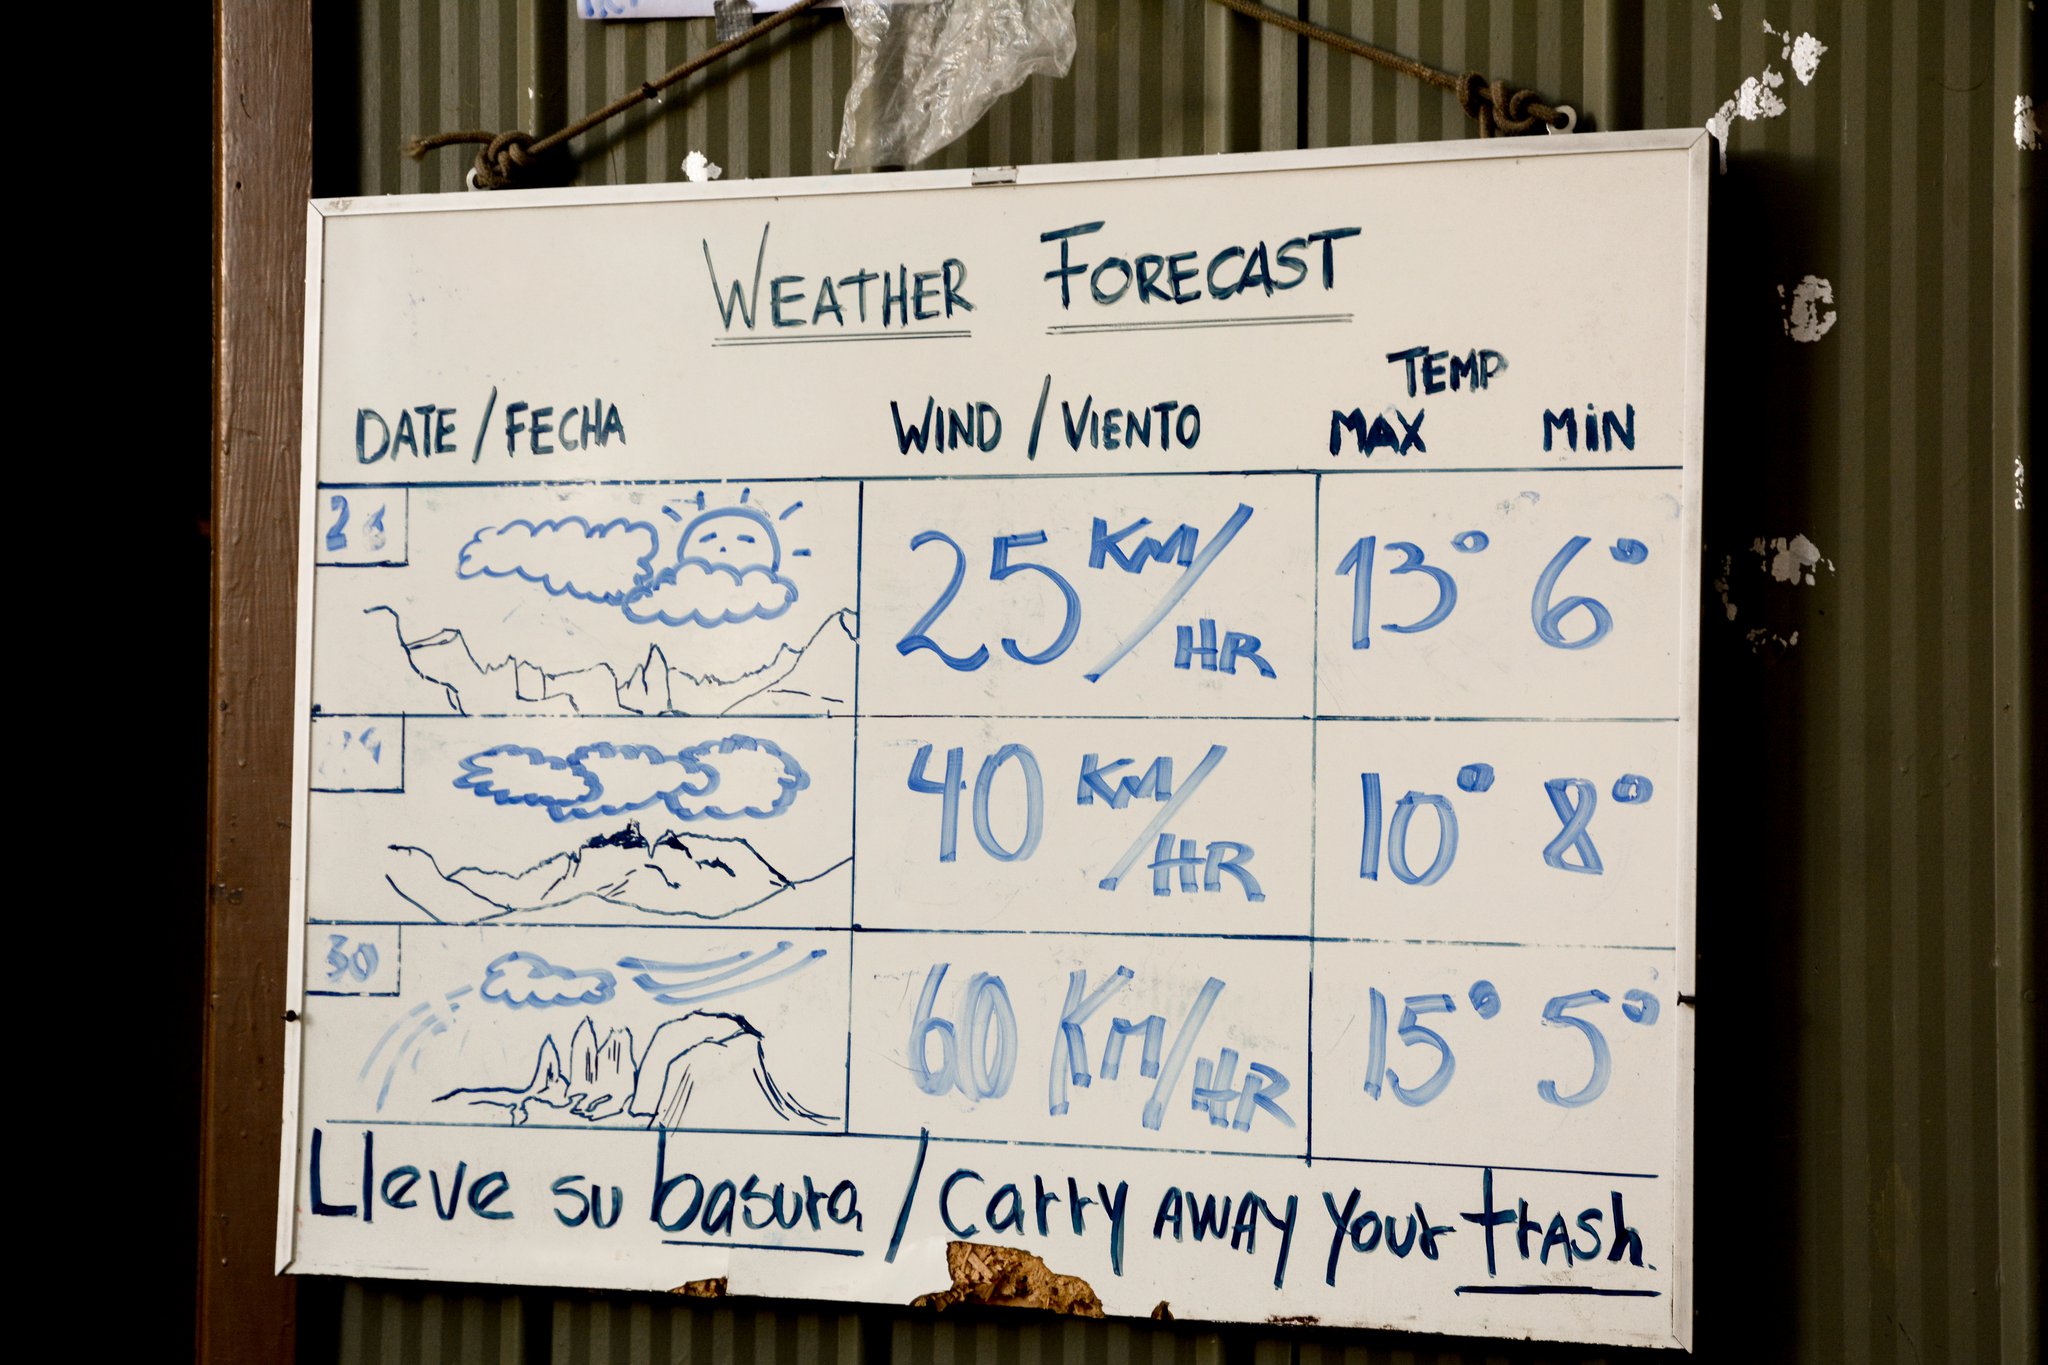 WEATHER FORECAST
TEMP
DATE / FECHA WIND / VIENTO MAX MiN
25 KM/HR 13° 6°
40 KM/HR 10° 8°
30 60 KM/HR 15° 5°
Lleve su basura / Carry AWAY Your trASh.